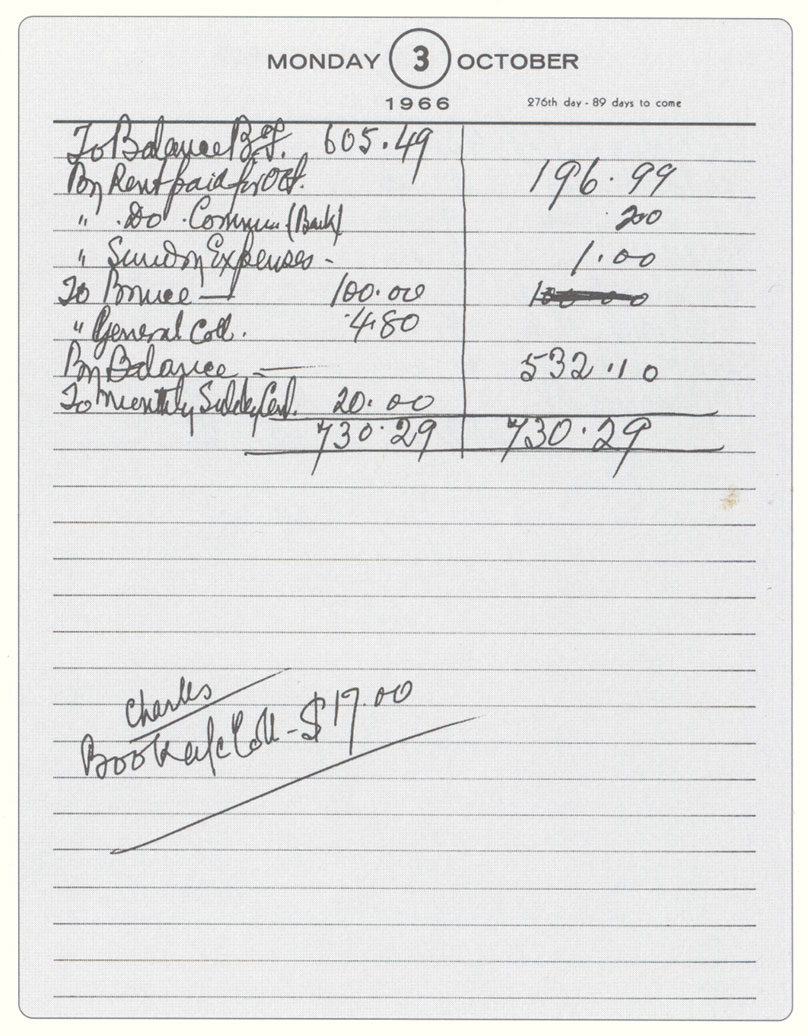 MONDAY 3 OCTOBER
1966 276th day - 89 days to come
To Balance B.F. 605.49
By Rent paid for Oct. 196.99
" Do Commn (Bank) .20
" Sundry Expenses - 1.00
To Bruce — 100.00
" General Coll. 4.80
By Balance — 532.10
To Monthly 20.00
730.29 730.29
Charles
Book a/c Coll - $17.00